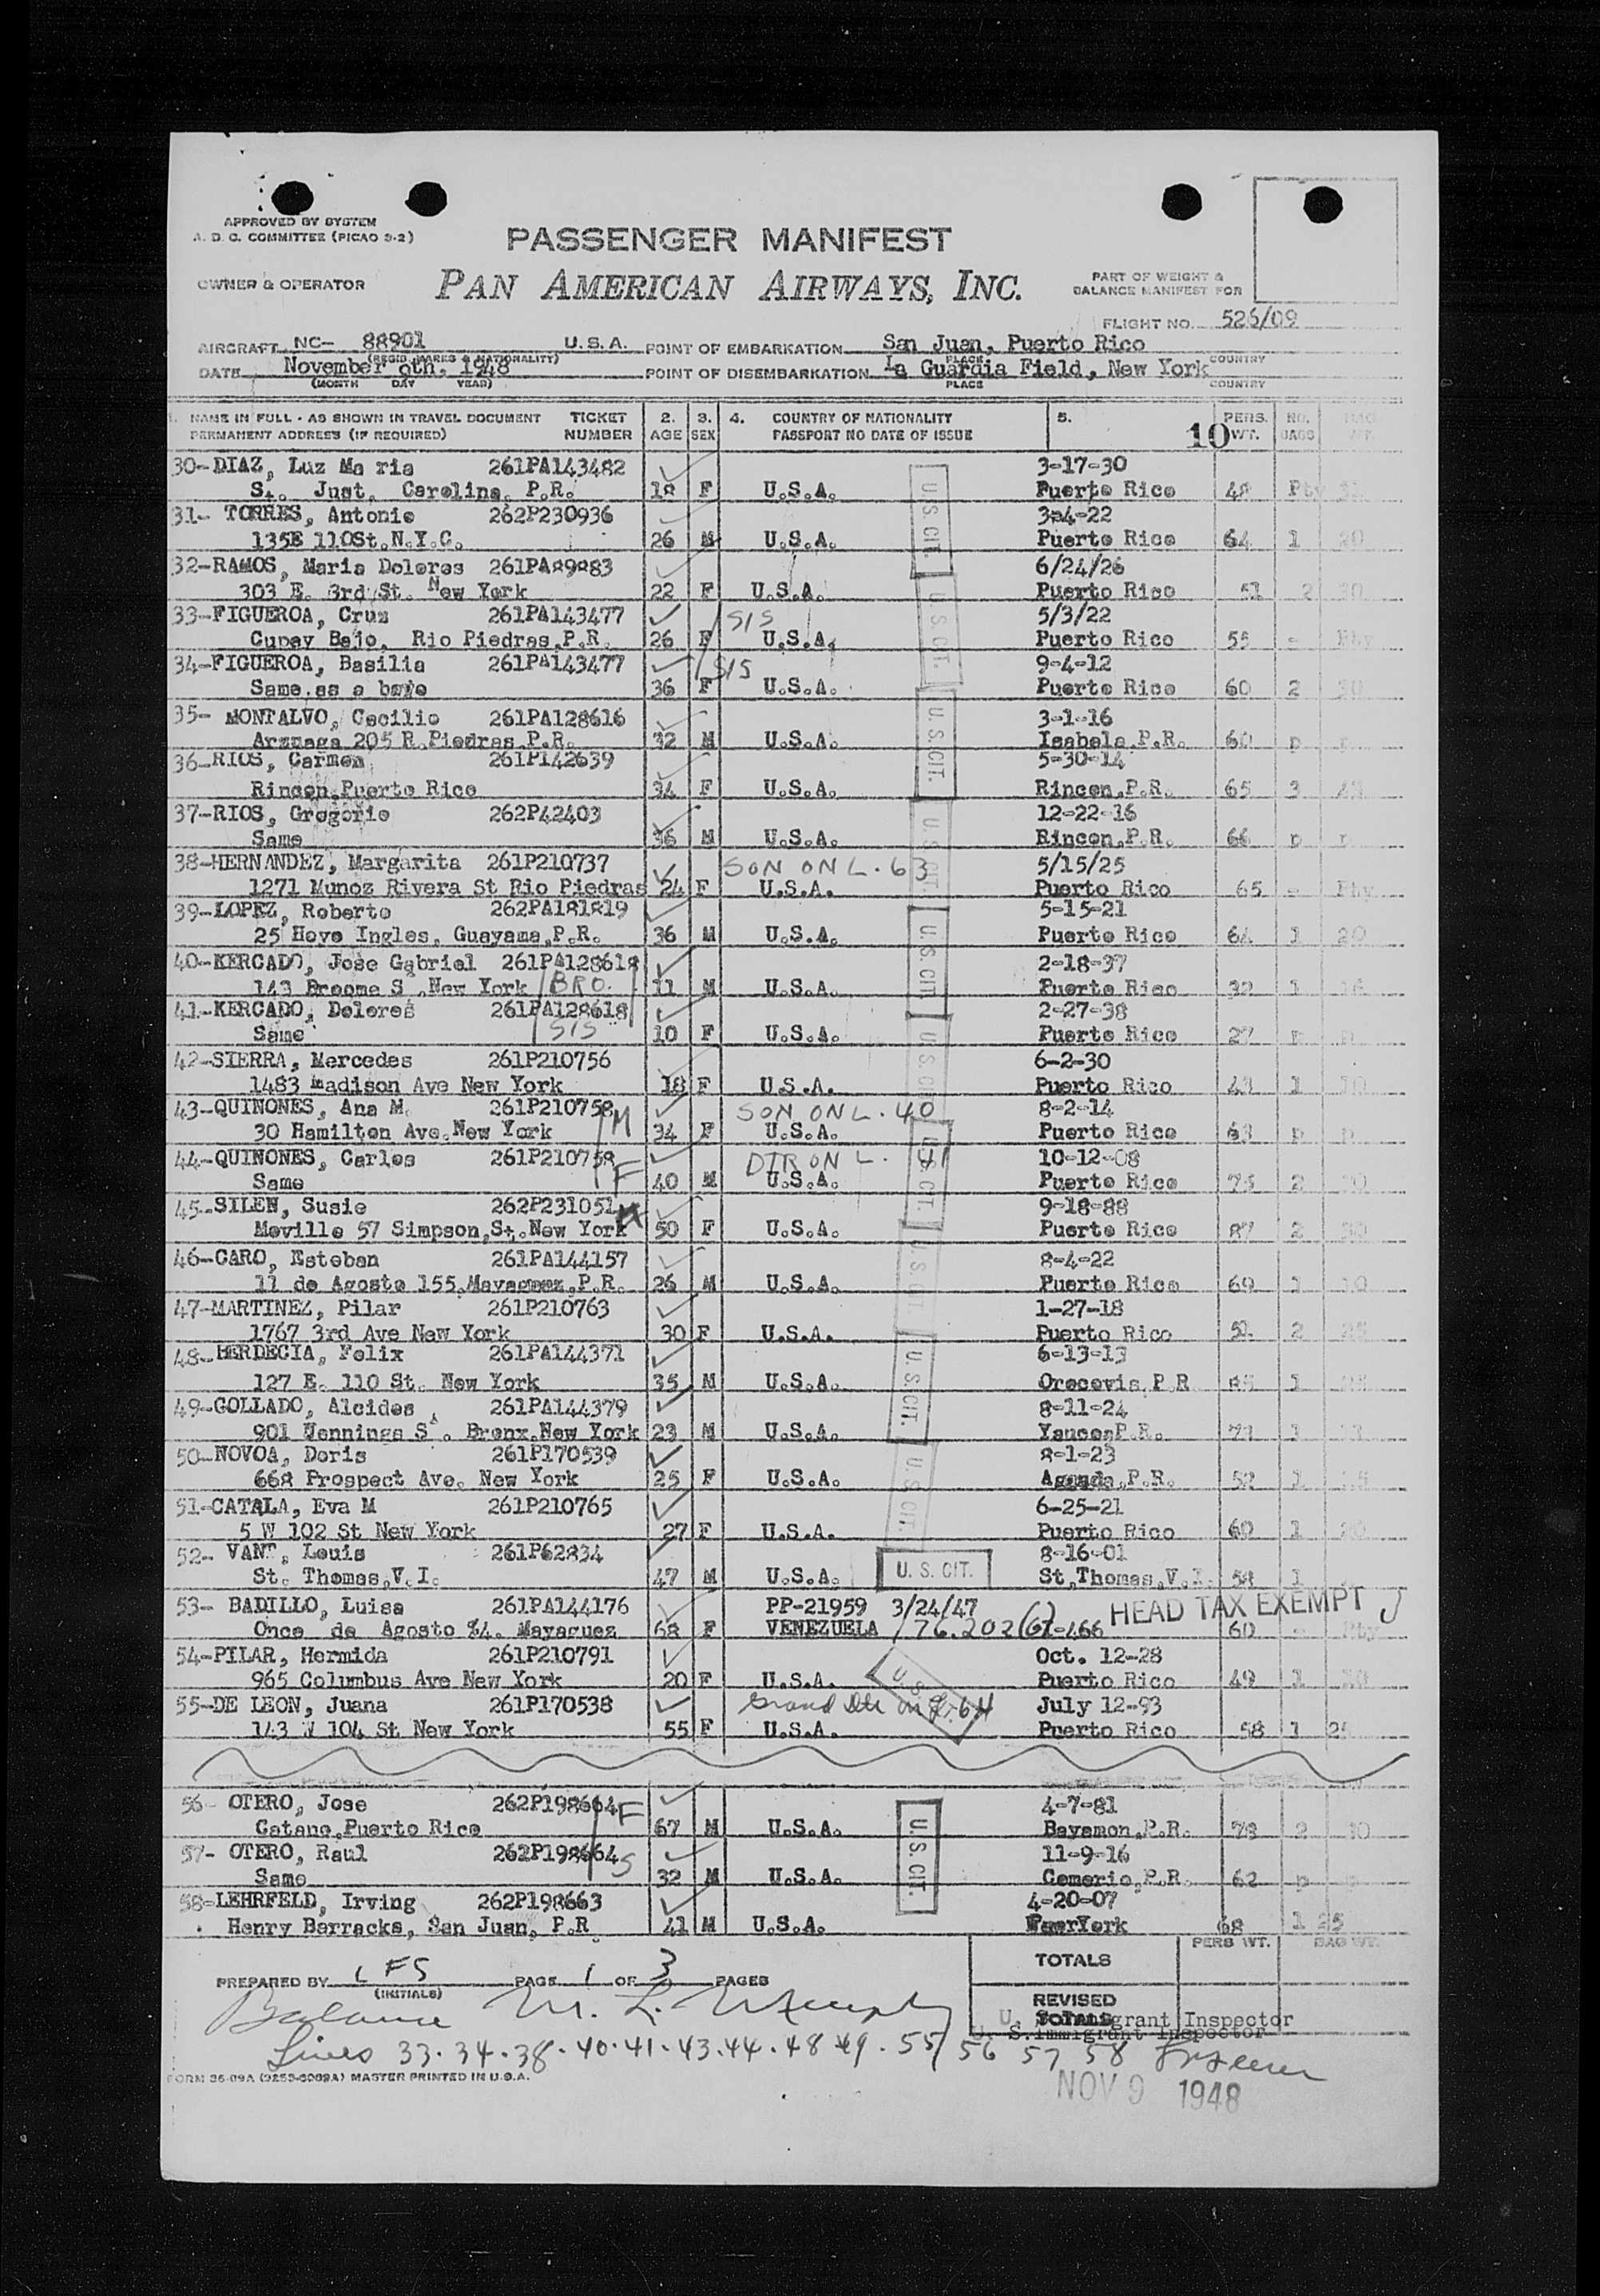 APPROVED BY SYSTEM
A. D. C. COMMITTEE (PICAO 9-2)
PASSENGER MANIFEST
OWNER & OPERATOR
PAN AMERICAN AIRWAYS, INC.
PART OF WEIGHT &
BALANCE MANIFEST FOR
FLIGHT NO. 526/09
AIRCRAFT NC- 88901 U.S.A. POINT OF EMBARKATION San Juan, Puerto Rico
(REGIS. MARKS & NATIONALITY) PLACE COUNTRY
DATE November 9th. 1948 POINT OF DISEMBARKATION La Guardia Field, New York
(MONTH DAY YEAR) PLACE COUNTRY
1. NAME IN FULL - AS SHOWN IN TRAVEL DOCUMENT TICKET 2. 3. 4. COUNTRY OF NATIONALITY 5. PERS. NO.
PERMANENT ADDRESS (IF REQUIRED) NUMBER AGE SEX PASSPORT NO DATE OF ISSUE 10 WT. BAGS WT.
30-DIAZ, Luz Ma ria 261PA143482 3-17-30
St. Just, Carolina, P.R. 18 F U.S.A. Puerto Rico 48 Pty
31- TORRES, Antonio 262P230936 3-4-22
135E 110St.N.Y.C. 26 M U.S.A. Puerto Rico 64 1 20
32-RAMOS, Maria Dolores 261PA89983 6/24/26
303 E. 3rd St. New York 22 F U.S.A. Puerto Rico 51 2 30
33-FIGUEROA, Cruz 261PA143477 SIS 5/3/22
Cupey Bajo, Rio Piedras,P.R. 26 F U.S.A. Puerto Rico 55 - Pty
34-FIGUEROA, Basilia 261PA143477 SIS 9-4-12
Same as a bove 36 F U.S.A. Puerto Rico 60 2 30
35- MONTALVO, Cecilio 261PA128616 3-1-16
Arzuaga 205 R.Piedras,P.R. 32 M U.S.A. Isabela,P.R. 60 p
36-RIOS, Carmen 261P142639 5-30-14
Rincon,Puerto Rico 34 F U.S.A. Rincon,P.R. 65 3
37-RIOS, Gregorio 262P42403 12-22-16
Same 36 M U.S.A. Rincon,P.R. 66 p
38-HERNANDEZ, Margarita 261P210737 SON ON L. 63 5/15/25
1271 Munoz Rivera St Rio Piedras 24 F U.S.A. Puerto Rico 65 - Pty
39-LOPEZ, Roberto 262PA181819 5-15-21
25 Hoyo Ingles, Guayama,P.R. 36 M U.S.A. Puerto Rico 64 1 20
40-KERCADO, Jose Gabriel 261PA128618 2-18-37
143 Broome S .New York BRO. 11 M U.S.A. Puerto Rico 32 1 16
41-KERCADO, Dolores 261PA128618 2-27-38
Same SIS 10 F U.S.A. Puerto Rico 27 p
42-SIERRA, Mercedes 261P210756 6-2-30
1483 Madison Ave New York 18 F U.S.A. Puerto Rico 43 1
43-QUINONES, Ana M. 261P210758 M SON ON L. 40 8-2-14
30 Hamilton Ave.New York 34 F U.S.A. Puerto Rico 63 p p
44-QUINONES, Carlos 261P210758 F DTR ON L. 41 10-12-08
Same 40 M U.S.A. Puerto Rico 75 2
45-SILEN, Susie 262P231051 9-18-88
Meville 57 Simpson,St.New York 50 F U.S.A. Puerto Rico 87 2 30
46-CARO, Esteban 261PA144157 8-4-22
11 de Agosto 155,Mayaguez,P.R. 26 M U.S.A. Puerto Rico 69 1 10
47-MARTINEZ, Pilar 261P210763 1-27-18
1767 3rd Ave New York 30 F U.S.A. Puerto Rico 51 2 25
48-HERDECIA, Felix 261PA144371 6-13-13
127 E. 110 St. New York 35 M U.S.A. Orocovis,P.R 1
49-GOLLADO, Alcides 261PA144379 8-11-24
901 Jennings S . Bronx,New York 23 M U.S.A. Yauco,P.R. 1
50-NOVOA, Doris 261P170539 8-1-23
668 Prospect Ave. New York 25 F U.S.A. Aguada,P.R. 52 1
51-CATALA, Eva M 261P210765 6-25-21
5 W 102 St New York 27 F U.S.A. Puerto Rico 60 1 20
52- VANT, Louis 261P62834 8-16-01
St. Thomas,V.I. 47 M U.S.A. U. S. CIT. St.Thomas,V.I. 58 1
53- BADILLO, Luisa 261PA144176 PP-21959 3/24/47 HEAD TAX EXEMPT
Once de Agosto 84. Mayaguez 68 F VENEZUELA 176.202(6) -466 60 - Pty
54-PILAR, Hermida 261P210791 Oct. 12-28
965 Columbus Ave New York 20 F U.S.A. Puerto Rico 49 1
55-DE LEON, Juana 261P170538 Grand Dtr on L. 64 July 12-93
143 W 104 St New York 55 F U.S.A. Puerto Rico 58 1 25
56- OTERO, Jose 262P198664 F 4-7-81
Catano,Puerto Rico 67 M U.S.A. Bayamon,P.R. 78 2 30
57- OTERO, Raul 262P198664 S 11-9-16
Same 32 M U.S.A. Comerio,P.R. 62 p
58-LEHRFELD, Irving 262P198663 4-20-07
Henry Barracks, San Juan, P.R 41 M U.S.A. 68 1 25
U. S. CIT.
U. S. CIT.
U. S. CIT.
U. S. CIT.
U. S. CIT.
U. S. CIT.
U. S. CIT.
U. S. CIT.
U. S. CIT.
U. S. CIT.
U. S. CIT.
PERS WT. BAG WT.
TOTALS
PREPARED BY LFS PAGE 1 OF 3 PAGES
(INITIALS)
REVISED
TOTALS
Balance M. L. Murphy
U. S. Immigrant Inspector
U. S. Immigrant Inspector
Lines 33. 34. 38. 40. 41. 43. 44. 48 49. 55/ 56 57 58
FORM 36-09A (9253-6069A) MASTER PRINTED IN U.S.A.
NOV 9 1948